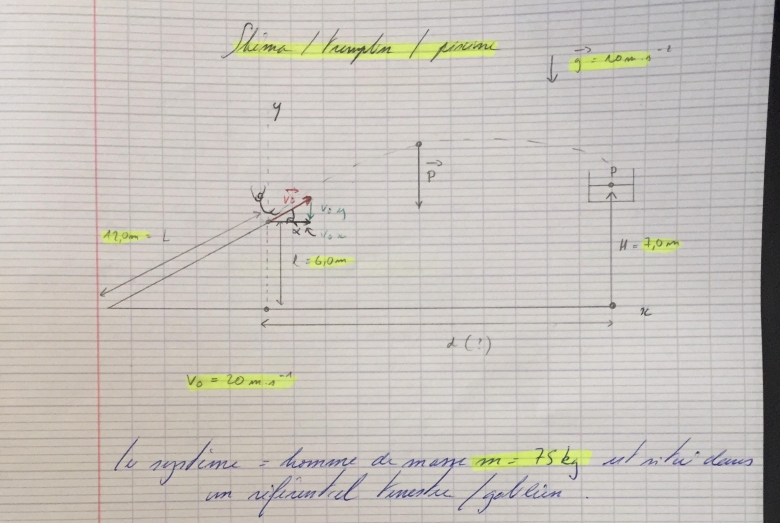 Shéma / tremplin / piscine
g = 10 m.s⁻²
y
P
P
V₀
V₀y
α
V₀x
12,0m = L
l = 6,0m
H = 7,0m
x
d (?)
V₀ = 20 m.s⁻¹
le système = homme de masse m = 75kg est situé dans
un référentiel terrestre / galiléen .